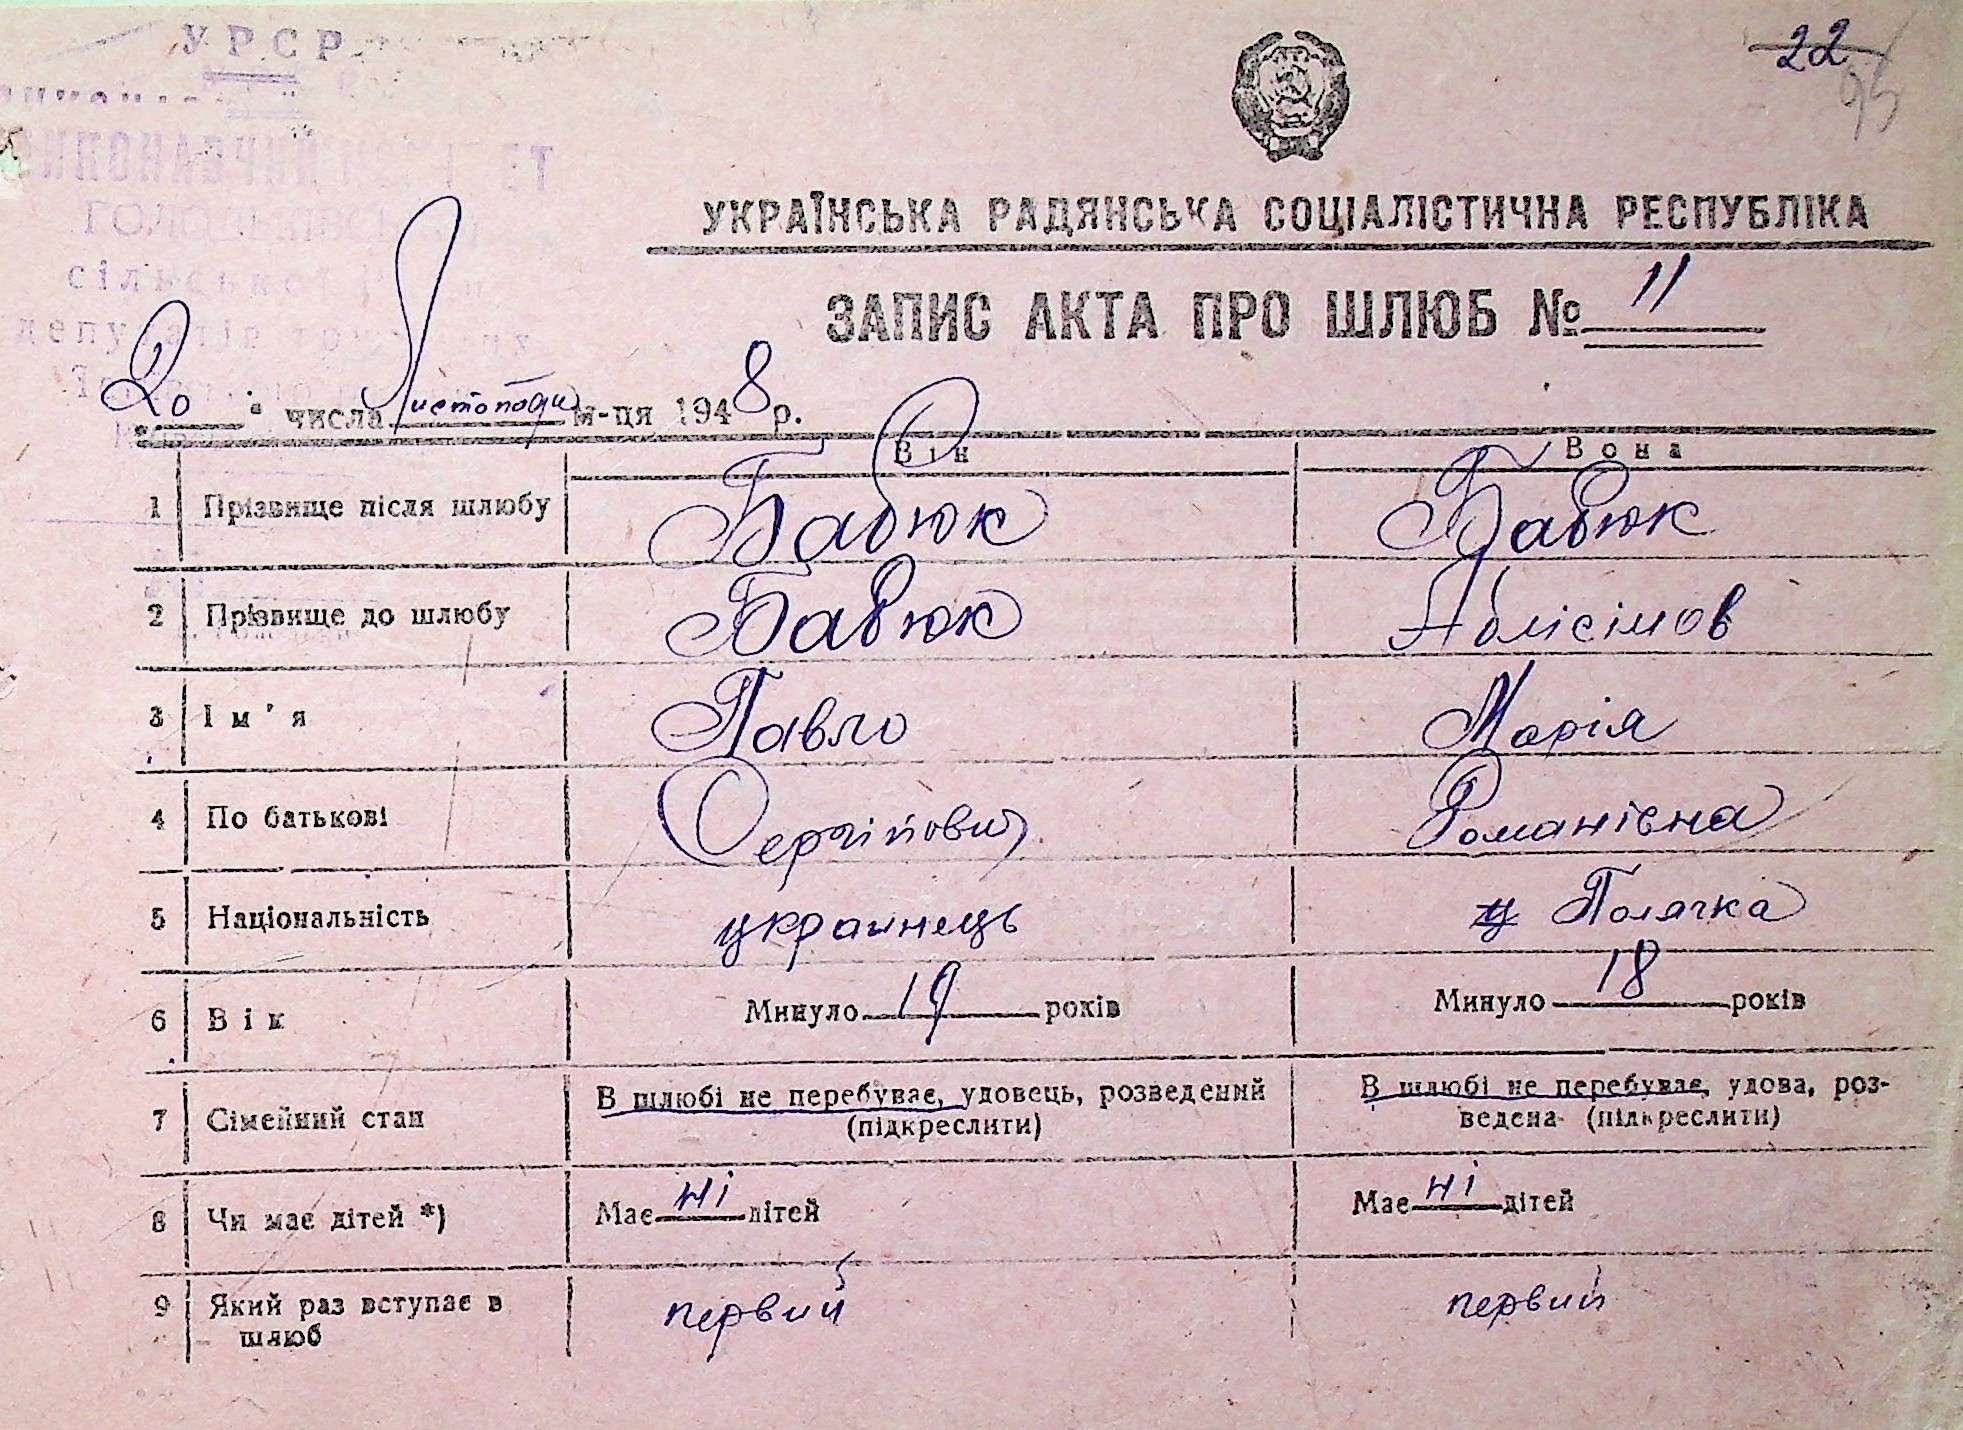 УРСР
22
УКРАЇНСЬКА РАДЯНСЬКА СОЦІАЛІСТИЧНА РЕСПУБЛІКА
ЗАПИС АКТА ПРО ШЛЮБ № 11
сільської
депутатів трудящих
"20" числа Листопада м-ця 1948 р.
Він Вона
1 Прізвище після шлюбу Бабюк Бабюк
2 Прізвище до шлюбу Бабюк
3 Ім'я Павло Марія
4 По батькові Сергійович Романівна
5 Національність украинець Полячка
6 Вік Минуло 19 років Минуло 18 років
7 Сімейний стан В шлюбі не перебуває, удовець, розведений (підкреслити) В шлюбі не перебуває, удова, роз-
ведена (підкреслити)
8 Чи має дітей *) Має ні дітей Має ні дітей
9 Який раз вступає в шлюб первий первий